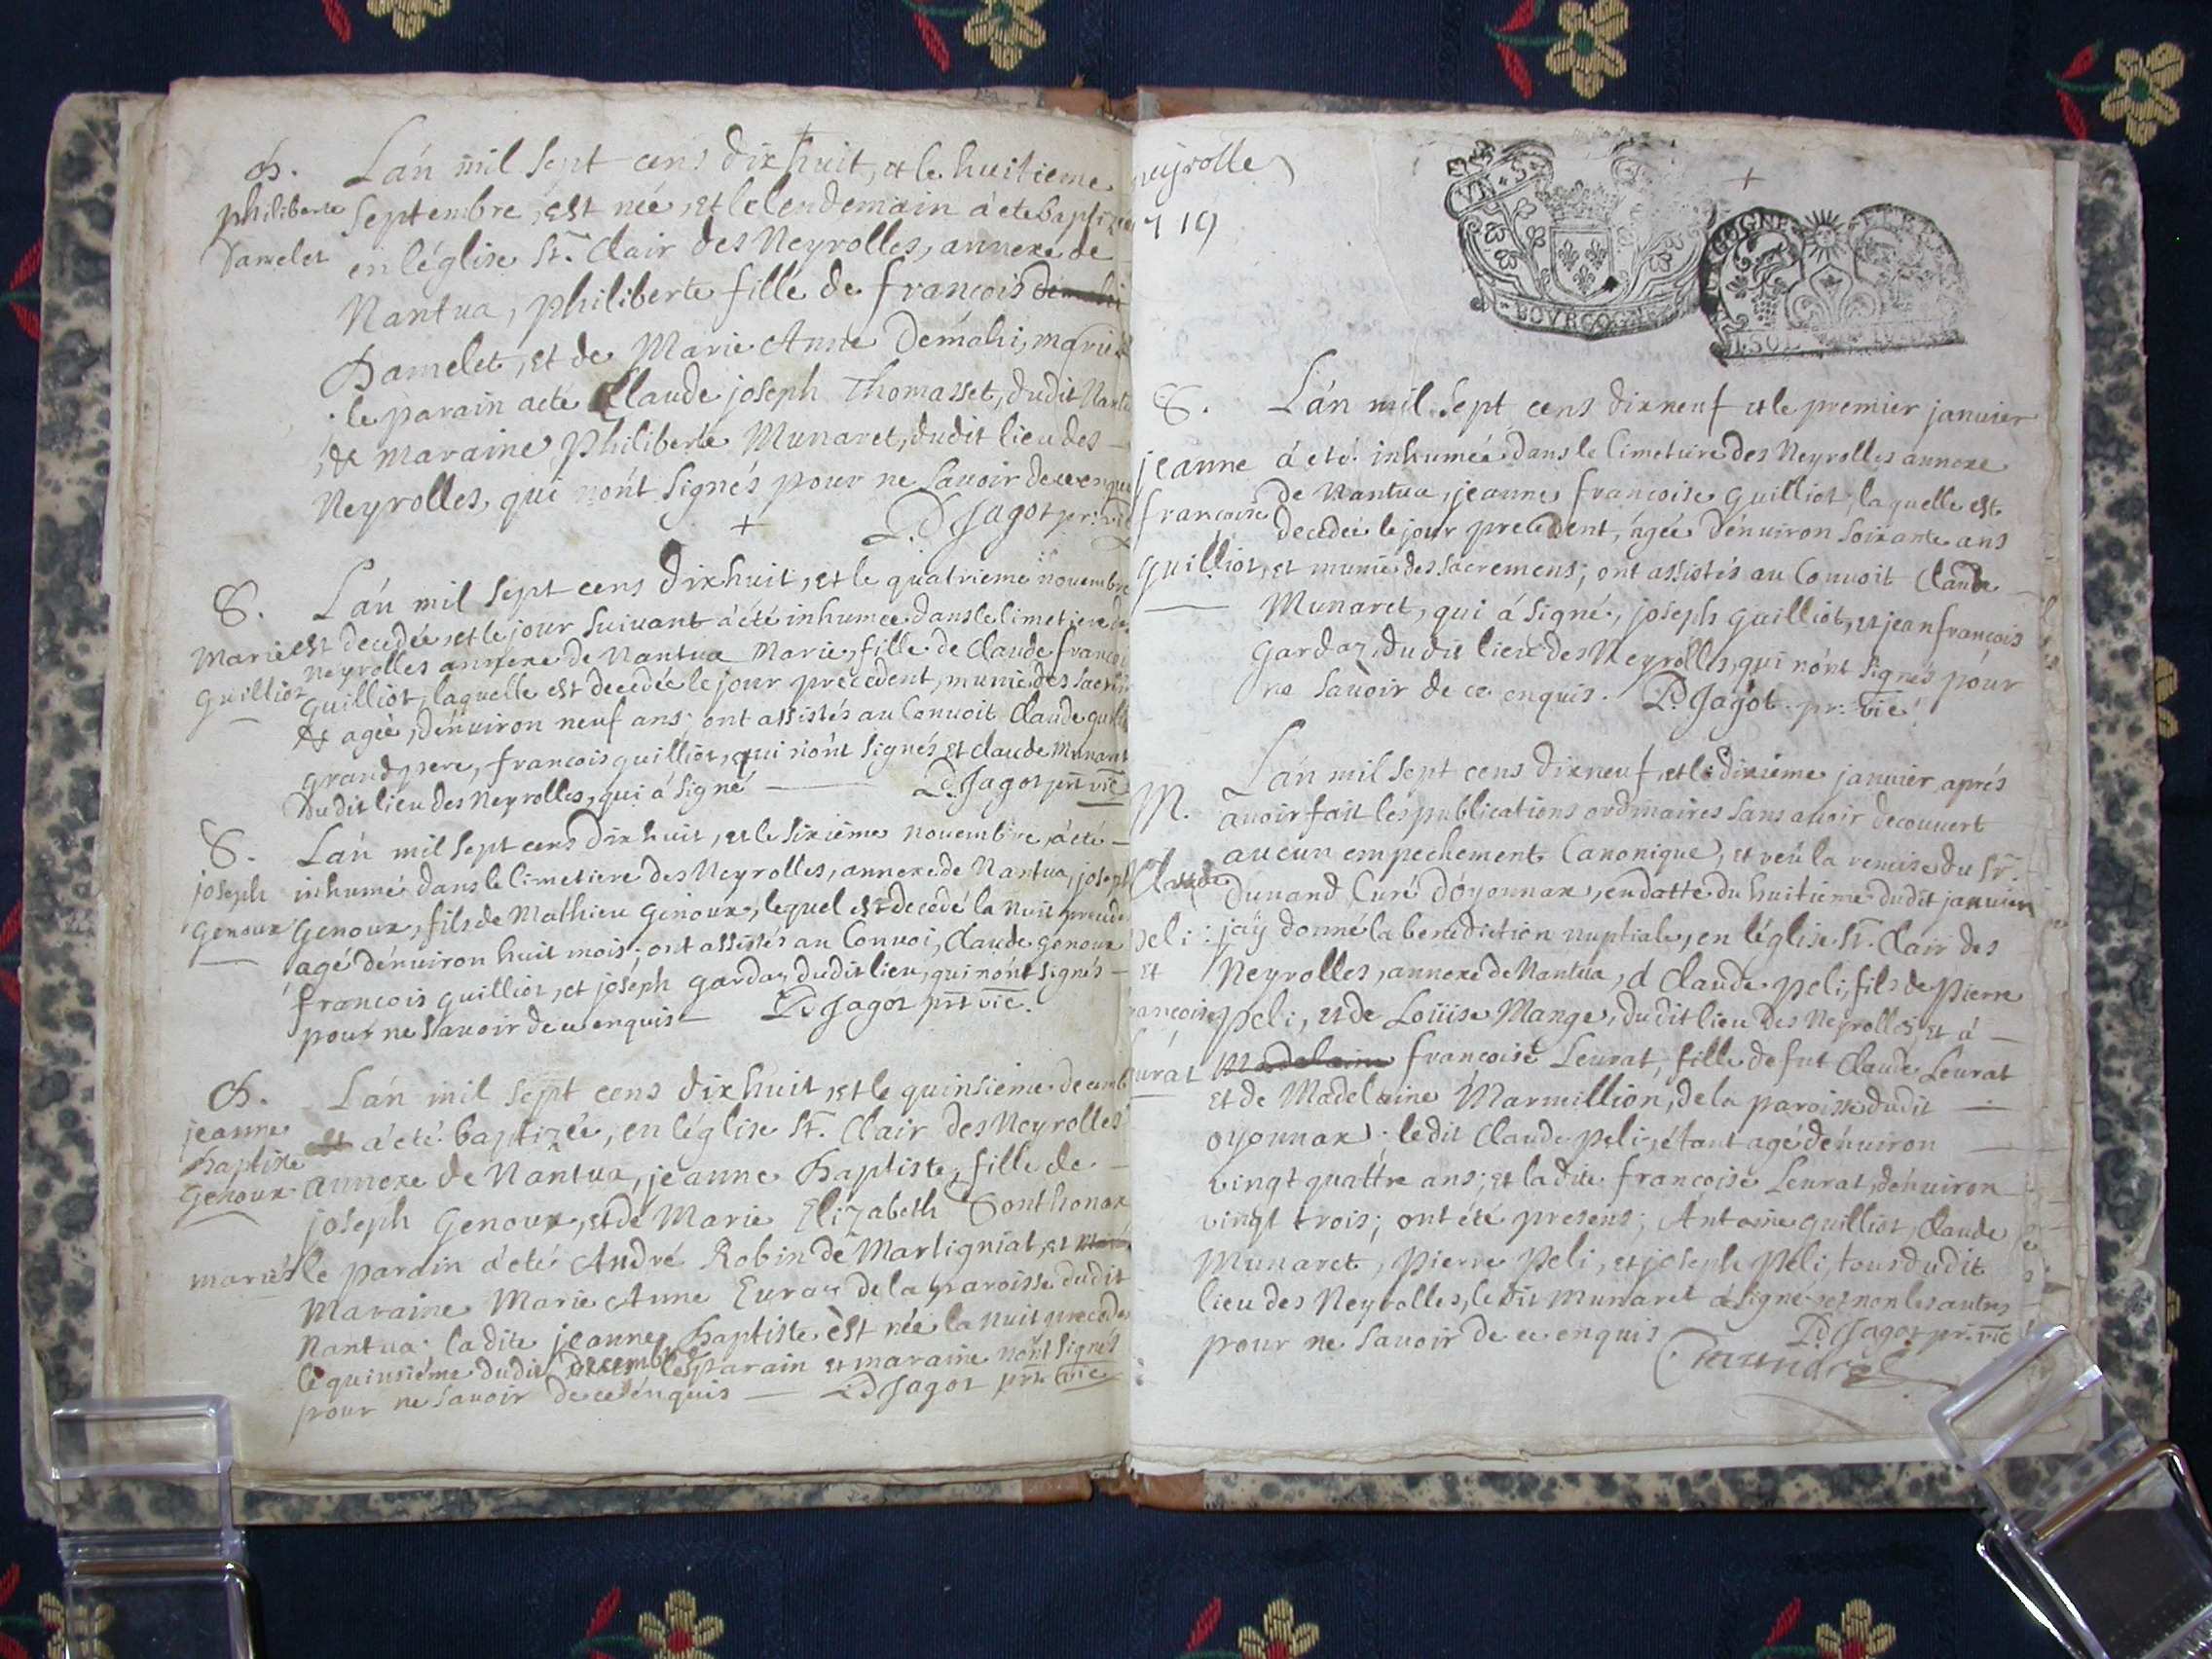 B.
philiberte
Damelet
L'an mil sept cens dix huit, et le huitieme
septembre, est née, et le lendemain a eté baptizée
en l'église St. Clair des Neyrolles, annexe de
Nantua, philiberte fille de françois
Damelet, et de Marie Anne Demahi, mariés
le parain a eté Claude joseph Thomasset, dudit Nantua
& maraine, philiberte Munaret, dudit lieu des
Neyrolles, qui n'ont signés pour ne savoir de ce enquis
D. Jagot pr: vic
S.
Marie
Guilliot
L'an mil sept cens dix huit, et le quatrieme novembre
est decedée, et le jour suivant a été inhumée dans le cimetiere des
Neyrolles annexe de Nantua Marie, fille de Claude françois
Guilliot, laquelle est decedée le jour precedent, munie des sacrem
& agée, d'environ neuf ans; ont assistés au Convoit Claude guilliot
grand pere, francois guilliot, qui n'ont signés, et Claude Munaret
dudit lieu des Neyrolles, qui a signé D. Jagot prt vic
S.
joseph
Genoux
L'an mil sept cens dix huit, et le sixième novembre, a eté
inhumé dans le cimetiere des Neyrolles, annexe de Nantua, joseph
Genoux, fils de Mathieu Genoux, lequel est decedé la nuit precede
agé d'environ huit mois; ont assistés au Convoi, Claude genoux
francois guilliot, et joséph gardaz dudit lieu, qui n'ont signés
pour ne savoir de ce enquis D. Jagot prt vic.
B.
jeanne
Baptiste
Genoux
L'an mil sept cens dix huit, et le quinsieme decemb
a eté baptizée, en l'église St. Clair des Neyrolles
annexe de Nantua, jeanne Baptiste, fille de
joseph Genoux, et de Marie Elizabeth Sonthonax
mariés le parain a eté André Robin de Martigniat, et
Maraine Marie Anne Euray de la paroisse dudit
Nantua. ladite jeanne Baptiste est née la nuit preceden
le quinsiéme dudit decembre les parain et maraine n'ont signés
pour ne savoir de ce enquis D Jagot prt vic
neyrolle
1719
VI. S.
BOVRGOGNE
S.
jeanne
françoise
guilliot
L'an mil sept cens dix neuf et le premier janvier
a eté inhumée dans le cimetiere des Neyrolles annexe
de Nantua, jeanne françoise guilliot, laquelle est
decedée le jour precedent, agée d'environ soixante ans
et munie des sacremens; ont assistés au Convoit Claude
Munaret, qui a signé, joseph guilliot, et jean françois
Gardaz, dudit lieu des Neyrolles, qui n'ont signés pour
ne savoir de ce enquis. D. Jagot pr: vic
M.
Claude
peli:
et
françoise
Leurat
L'an mil sept cens dix neuf, et le dixiéme janvier, aprés
avoir fait les publications ordinaires sans avoir decouvert
aucun empechement Canonique, et veü la remise du Sr.
Dunand Curé d'oyonnax, en datte du huitieme dudit janvier
j'aÿ donné la benediction nuptiale, en l'église St. Clair des
Neyrolles, annexe de Nantua, a Claude peli, fils de pierre
peli, et de Loüise Mange, dudit lieu des Neyrolles, et a
françoise Leurat, fille de fut Claude Leurat
et de Madelaine Marmillion, de la paroisse dudit
oyonnax; ledit Claude peli, étant agé d'environ
vingt quattre ans; et la dite françoise Leurat, d'environ
vingt trois; ont eté presens; Antoine guilliot, Claude
Munaret, pierre peli, et joseph peli, tous dudit
lieu des Neyrolles, ledit Munaret a signé, et non les autres
pour ne savoir de ce enquis D. Jagot pr: vic
C munaret